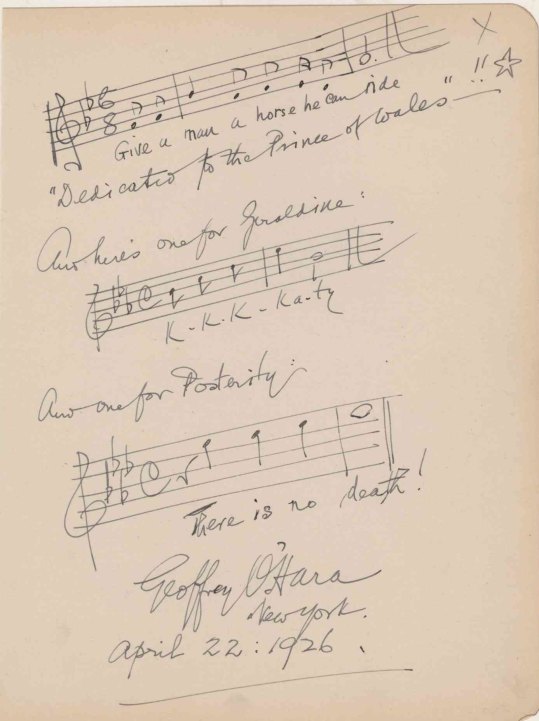 6
8
Give a man a horse he can ride
"Dedicated to the Prince of Wales" — !! ☆
And here's one for Geraldine:
K-K-K-Ka-ty
And one for Posterity:
There is no death!
Geoffrey O'Hara
New York.
April 22: 1926.